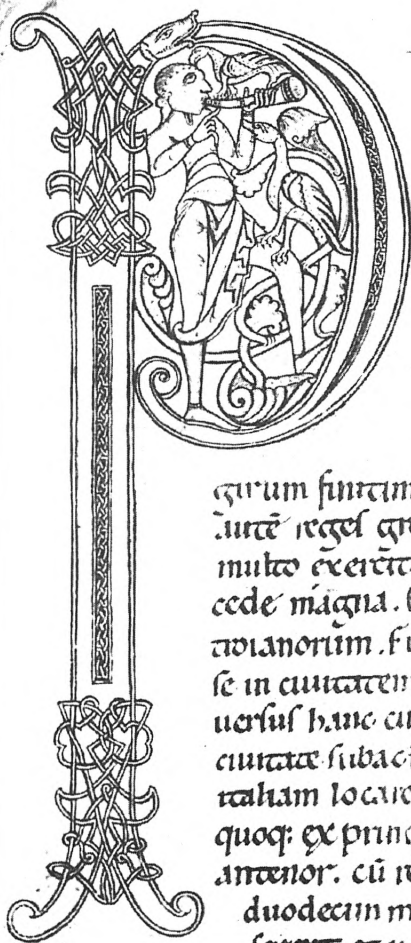 P
finitim
autē reges gr
multo exercit
cede magna.
troianorum. F
se in ciuitatem
uersus hanc ci
ciuitate subac
italiam locare
quoq; ex princ
antenor. cū
duodecim m